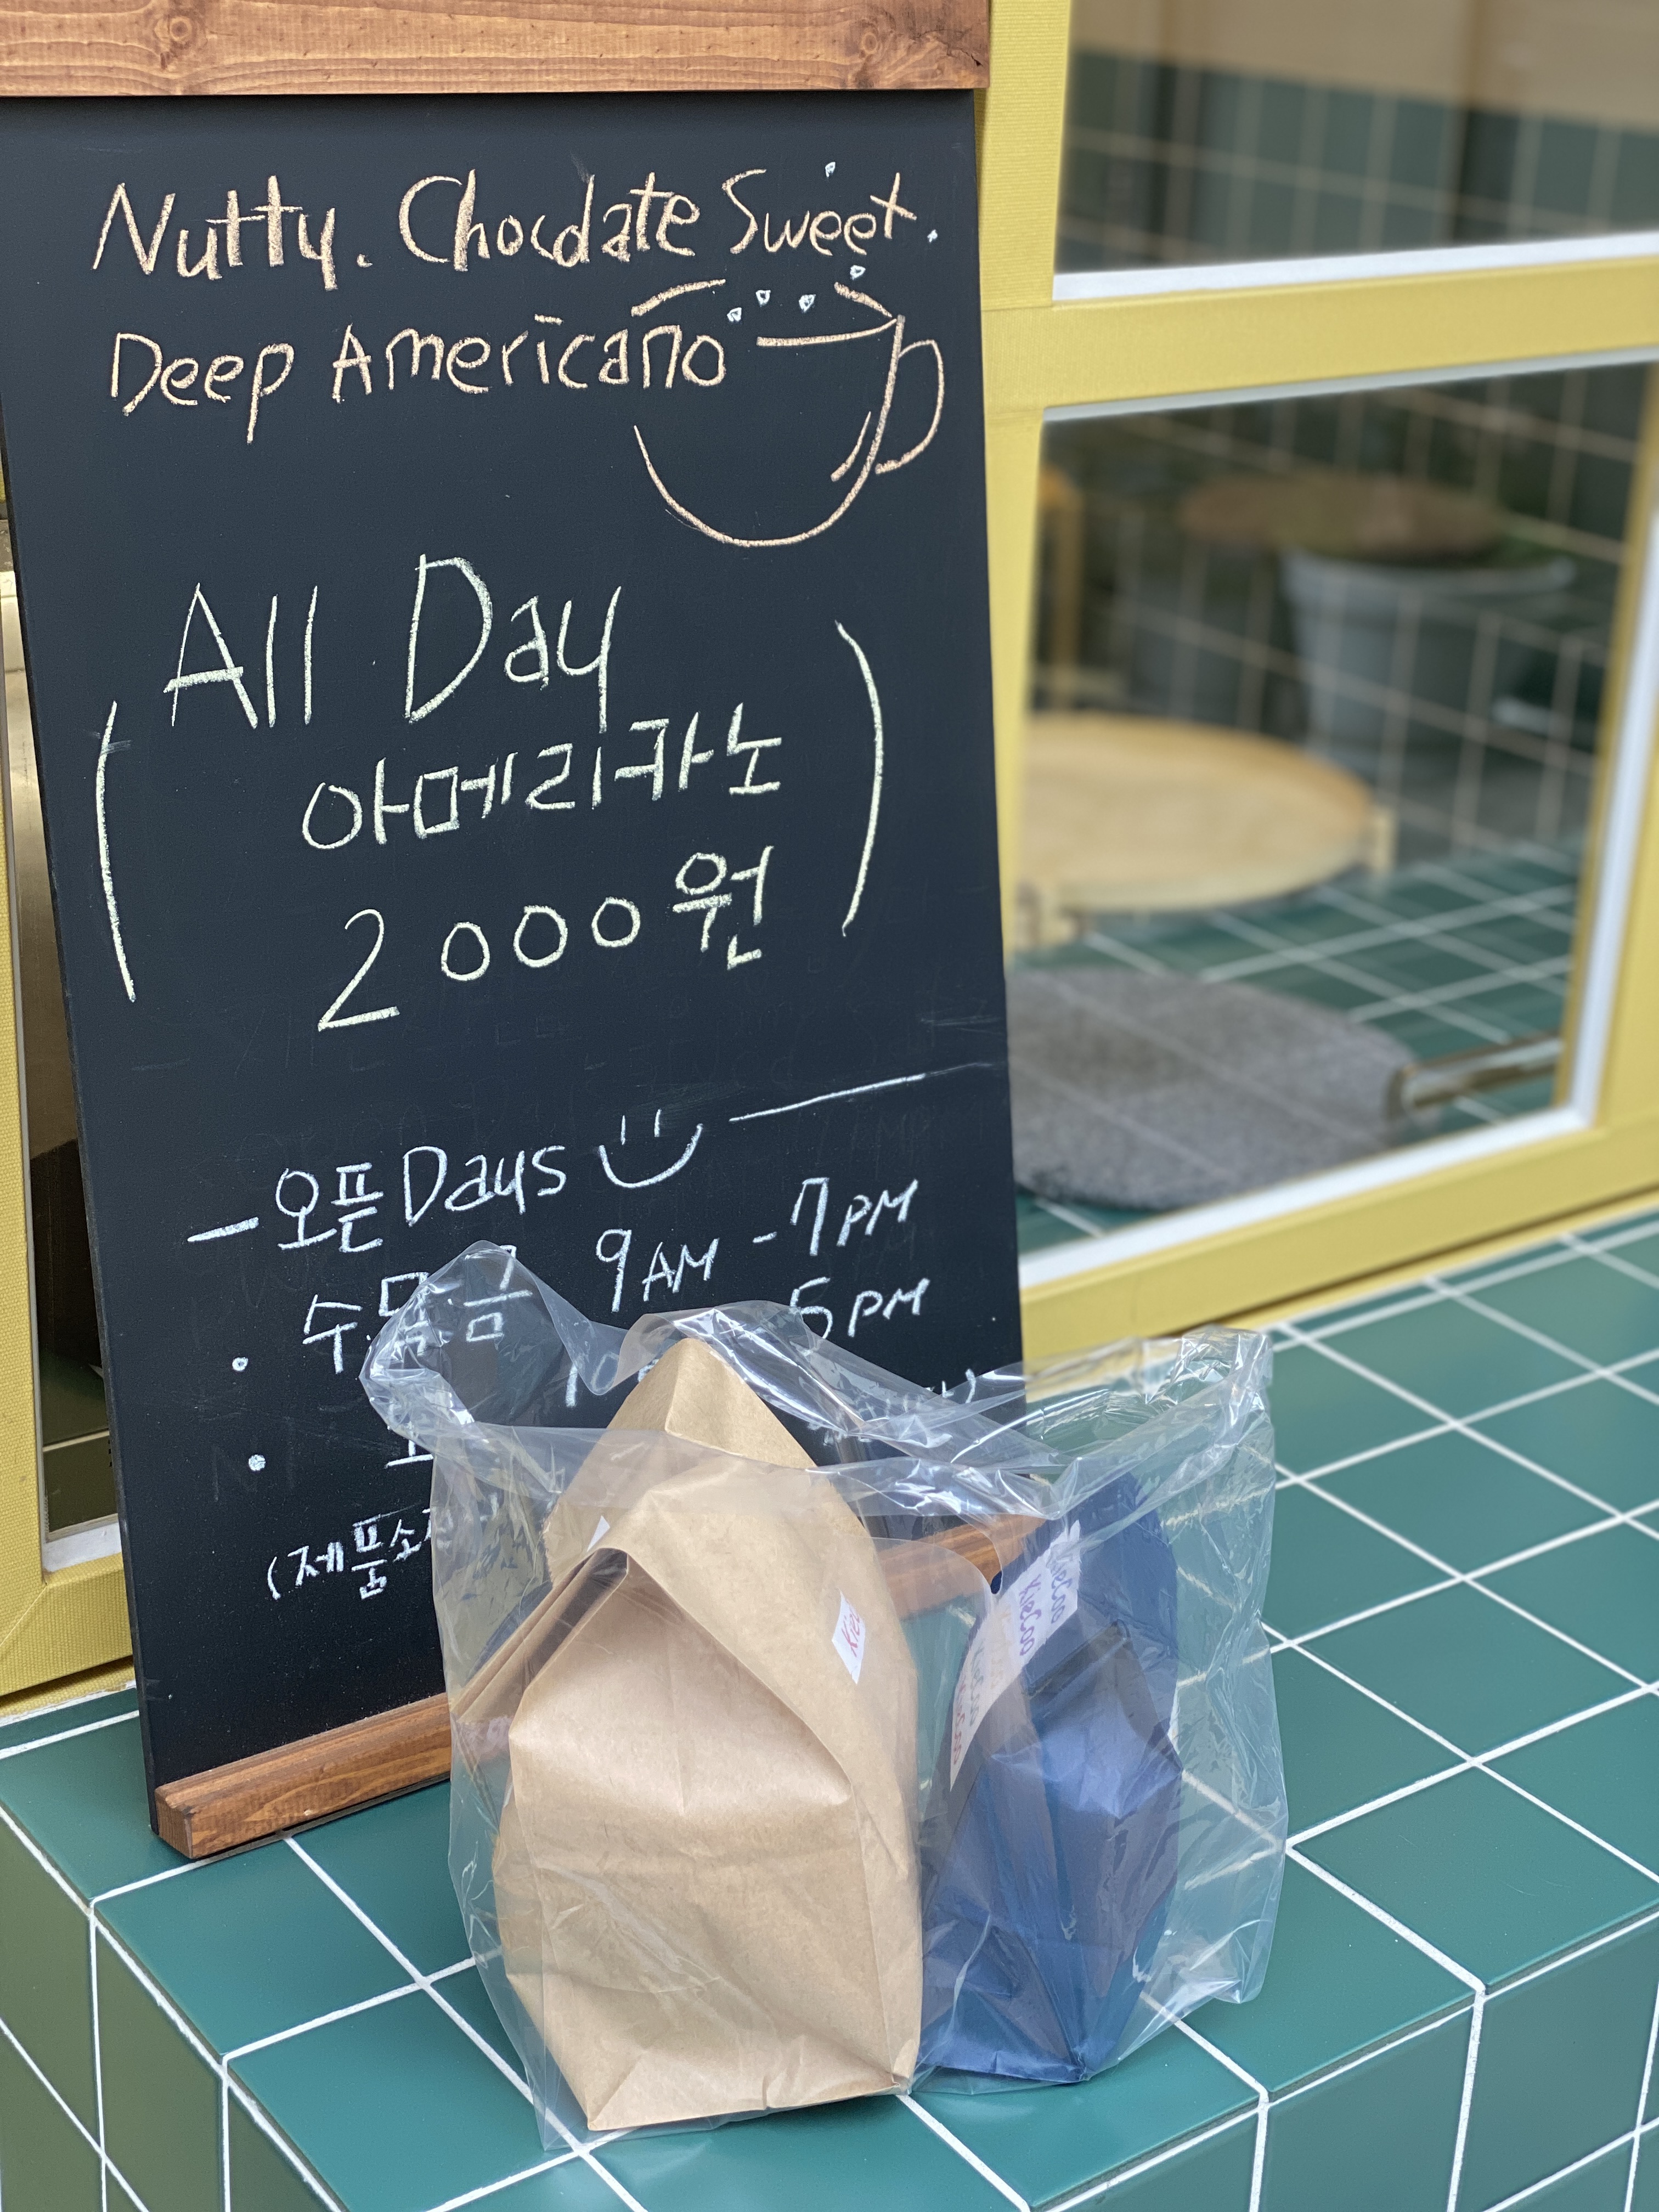 Nutty. Chocolate Sweet.
Deep Americano
All Day
(아메리카노
2000원)
- 오픈 Days
· 수.목.금 9AM - 7PM
5PM
(제품소
KieCoo
KieCoo
KieCoo